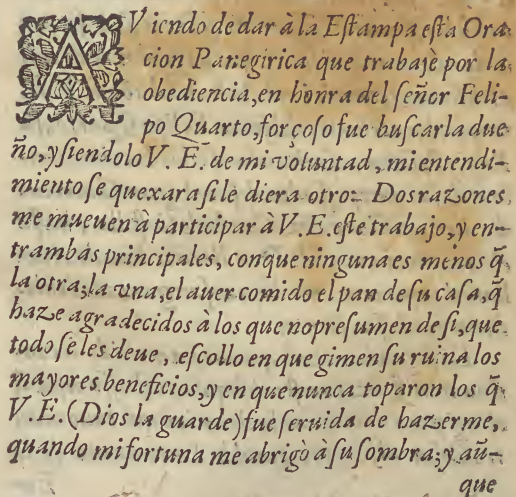 AViendo de dar à la Eſtampa eſta Ora-
cion Panegirica que trabajè por la
obediencia, en honra del ſeñor Feli-
po Quarto, forçoſo fue buſcarla due
ño, y ſiendolo V. E. de mi voluntad, mi entendi-
miento ſe quexara ſi le diera otro: Dos razones
me mueuen à participar à V. E. eſte trabajo, y en-
trambas principales, con que ninguna es menos q̃
la otra; la vna, el auer comido el pan de ſu caſa, q̃
haze agradecidos à los que no preſumen de ſi, que
todo ſe les deue, eſcollo en que gimen ſu ruina los
mayores beneficios, y en que nunca toparon los q̃
V. E. (Dios la guarde) fue ſeruida de hazerme,
quando mi fortuna me abrigò à ſu ſombra; y aũ-
que